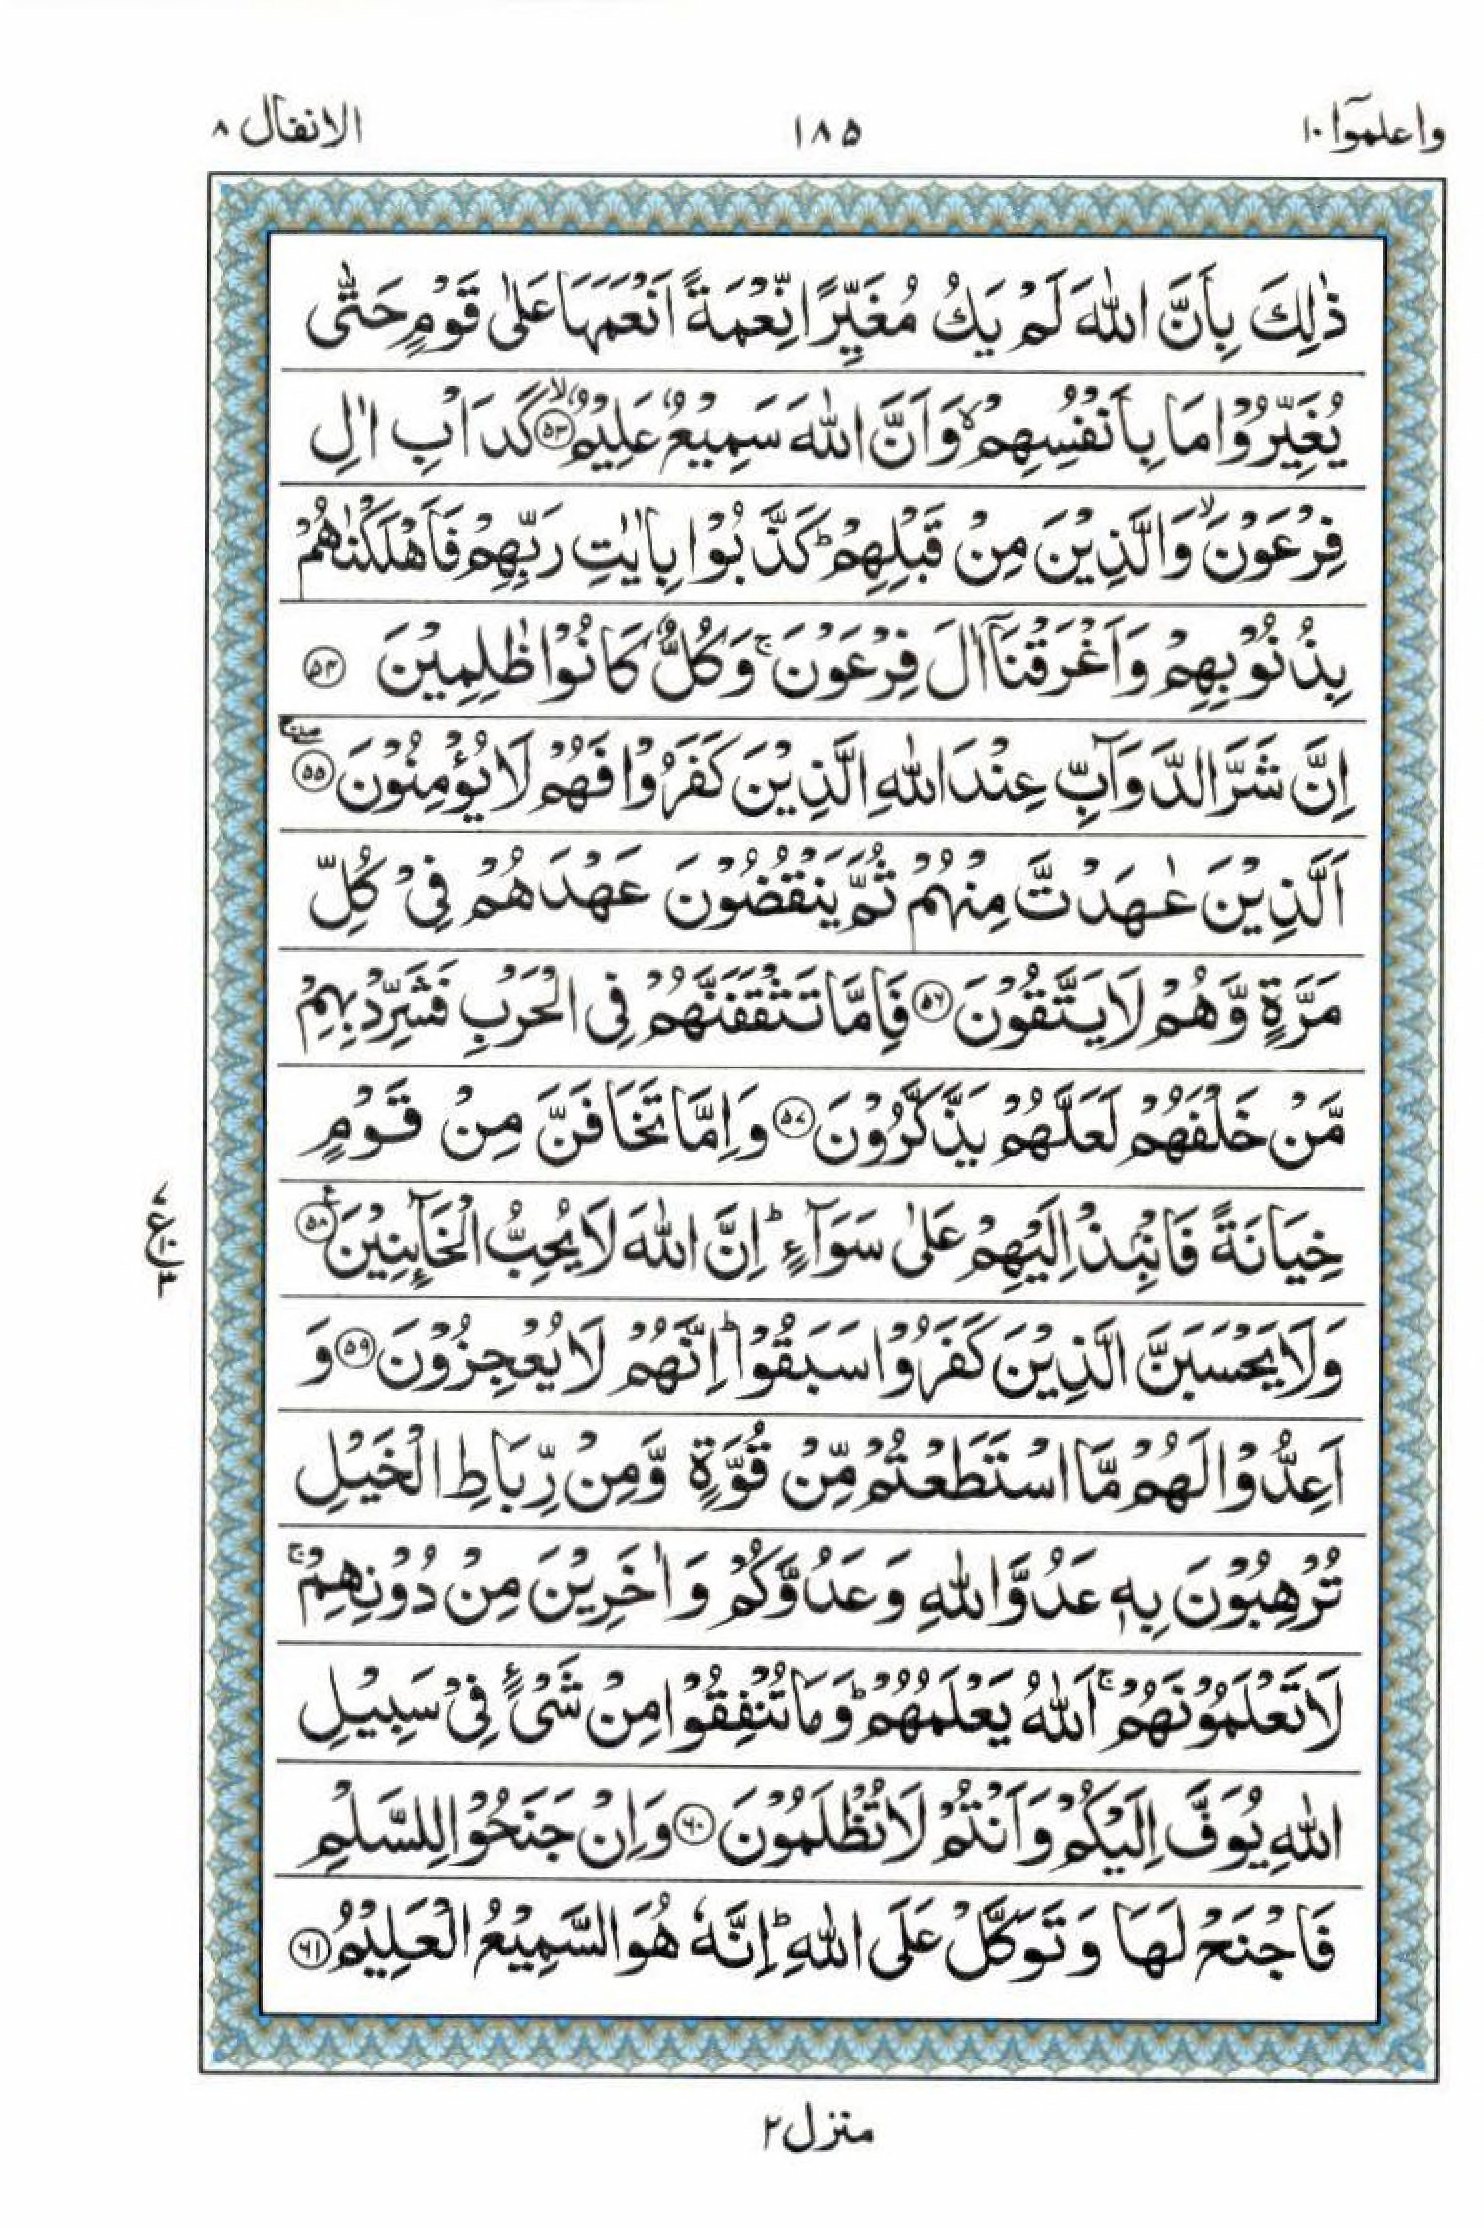 واعلموٓا ١٠
١٨۵
الانفال ٨
ذٰلِكَ بِاَنَّ اللّٰهَ لَمْ يَكُ مُغَيِّرًا نِّعْمَةً اَنْعَمَهَا عَلٰى قَوْمٍ حَتّٰى
يُغَيِّرُوْا مَا بِاَنْفُسِهِمْ ۙ وَاَنَّ اللّٰهَ سَمِيْعٌ عَلِيْمٌ ۙ‏﴿۵۳﴾ كَدَاْبِ اٰلِ
فِرْعَوْنَ ۙ وَالَّذِيْنَ مِنْ قَبْلِهِمْ ؕ كَذَّبُوْا بِاٰيٰتِ رَبِّهِمْ فَاَهْلَكْنٰهُمْ
بِذُنُوْبِهِمْ وَاَغْرَقْنَاۤ اٰلَ فِرْعَوْنَ ۚ وَكُلٌّ كَانُوْا ظٰلِمِيْنَ ﴿۵۴﴾
اِنَّ شَرَّ الدَّوَآبِّ عِنْدَ اللّٰهِ الَّذِيْنَ كَفَرُوْا فَهُمْ لَا يُؤْمِنُوْنَ ۖۚ﴿۵۵﴾
اَلَّذِيْنَ عٰهَدْتَّ مِنْهُمْ ثُمَّ يَنْقُضُوْنَ عَهْدَهُمْ فِيْ كُلِّ
مَرَّةٍ وَّهُمْ لَا يَتَّقُوْنَ ﴿۵۶﴾ فَاِمَّا تَثْقَفَنَّهُمْ فِى الْحَرْبِ فَشَرِّدْ بِهِمْ
مَّنْ خَلْفَهُمْ لَعَلَّهُمْ يَذَّكَّرُوْنَ ﴿۵۷﴾ وَاِمَّا تَخَافَنَّ مِنْ قَوْمٍ
خِيَانَةً فَانْۢبِذْ اِلَيْهِمْ عَلٰى سَوَآءٍ ؕ اِنَّ اللّٰهَ لَا يُحِبُّ الْخَآئِنِيْنَ ﴿۵۸﴾
ع
٣
وَلَا يَحْسَبَنَّ الَّذِيْنَ كَفَرُوْا سَبَقُوْا ؕ اِنَّهُمْ لَا يُعْجِزُوْنَ ﴿۵۹﴾ وَ
اَعِدُّوْا لَهُمْ مَّا اسْتَطَعْتُمْ مِّنْ قُوَّةٍ وَّمِنْ رِّبَاطِ الْخَيْلِ
تُرْهِبُوْنَ بِهٖ عَدُوَّ اللّٰهِ وَعَدُوَّكُمْ وَاٰخَرِيْنَ مِنْ دُوْنِهِمْ ۚ
لَا تَعْلَمُوْنَهُمْ ۚ اَللّٰهُ يَعْلَمُهُمْ ؕ وَمَا تُنْفِقُوْا مِنْ شَيْءٍ فِيْ سَبِيْلِ
اللّٰهِ يُوَفَّ اِلَيْكُمْ وَاَنْتُمْ لَا تُظْلَمُوْنَ ﴿۶۰﴾ وَاِنْ جَنَحُوْا لِلسَّلْمِ
فَاجْنَحْ لَهَا وَتَوَكَّلْ عَلَى اللّٰهِ ؕ اِنَّهٗ هُوَ السَّمِيْعُ الْعَلِيْمُ ﴿۶۱﴾
منزل ٢